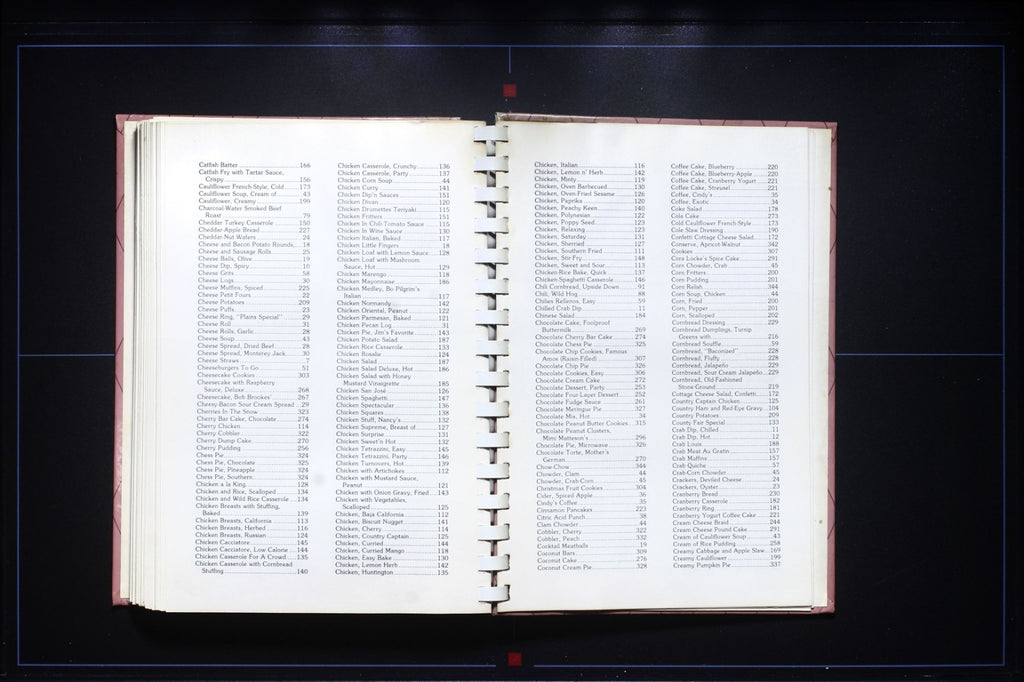 Catfish Batter 166
Catfish Fry with Tartar Sauce,
Crispy 156
Cauliflower French-Style, Cold 173
Cauliflower Soup, Cream of 43
Cauliflower, Creamy 199
Charcoal-Water Smoked Beef
Roast 79
Cheddar Turkey Casserole 150
Cheddar Apple Bread 227
Cheddar-Nut Wafers 24
Cheese and Bacon Potato Rounds 18
Cheese and Sausage Rolls 25
Cheese Balls, Olive 19
Cheese Dip, Spicy 10
Cheese Grits 58
Cheese Logs 30
Cheese Muffins, Spiced 225
Cheese Petit Fours 22
Cheese Potatoes 209
Cheese Puffs 23
Cheese Ring, "Plains Special" 29
Cheese Roll 31
Cheese Rolls, Garlic 28
Cheese Soup 43
Cheese Spread, Dried Beef 28
Cheese Spread, Monterey Jack 30
Cheese Straws 7
Cheeseburgers To Go 51
Cheesecake Cookies 303
Cheesecake with Raspberry
Sauce, Deluxe 268
Cheesecake, Bob Brookes' 267
Cheesy-Bacon Sour Cream Spread 29
Cherries In The Snow 323
Cherry Bar Cake, Chocolate 274
Cherry Chicken 114
Cherry Cobbler 322
Cherry Dump Cake 270
Cherry Pudding 256
Chess Pie 324
Chess Pie, Chocolate 325
Chess Pie, Pineapple 324
Chess Pie, Southern 324
Chicken a la King 128
Chicken and Rice, Scalloped 134
Chicken and Wild Rice Casserole 134
Chicken Breasts with Stuffing,
Baked 139
Chicken Breasts, California 113
Chicken Breasts, Herbed 116
Chicken Breasts, Russian 124
Chicken Cacciatore 145
Chicken Cacciatore, Low Calorie 144
Chicken Casserole For A Crowd 135
Chicken Casserole with Cornbread
Stuffing 140
Chicken Casserole, Crunchy 136
Chicken Casserole, Party 137
Chicken Corn Soup 44
Chicken Curry 141
Chicken Dip'n Sauces 151
Chicken Divan 120
Chicken Drumettes Teriyaki 115
Chicken Fritters 151
Chicken In Chili Tomato Sauce 115
Chicken In Wine Sauce 130
Chicken Italian, Baked 117
Chicken Little Fingers 18
Chicken Loaf with Lemon Sauce 128
Chicken Loaf with Mushroom
Sauce, Hot 129
Chicken Marengo 118
Chicken Mayonnaise 186
Chicken Medley, Bo Pilgrim's
Italian 117
Chicken Normandy 142
Chicken Oriental, Peanut 122
Chicken Parmesan, Baked 121
Chicken Pecan Log 31
Chicken Pie, Jim's Favorite 143
Chicken Potato Salad 187
Chicken Rice Casserole 133
Chicken Rosalie 124
Chicken Salad 187
Chicken Salad Deluxe, Hot 186
Chicken Salad with Honey
Mustard Vinaigrette 185
Chicken San José 126
Chicken Spaghetti 147
Chicken Spectacular 136
Chicken Squares 138
Chicken Stuff, Nancy's 132
Chicken Supreme, Breast of 127
Chicken Surprise 131
Chicken Sweet'n Hot 132
Chicken Tetrazzini, Easy 145
Chicken Tetrazzini, Party 146
Chicken Turnovers, Hot 139
Chicken with Artichokes 112
Chicken with Mustard Sauce,
Peanut 121
Chicken with Onion Gravy, Fried 143
Chicken with Vegetables,
Scalloped 125
Chicken, Baja California 112
Chicken, Biscuit Nugget 141
Chicken, Cherry 114
Chicken, Country Captain 125
Chicken, Curried 144
Chicken, Curried Mango 118
Chicken, Easy Bake 130
Chicken, Lemon Herb 142
Chicken, Huntington 135
Chicken, Italian 116
Chicken, Lemon n' Herb 142
Chicken, Minty 119
Chicken, Oven Barbecued 130
Chicken, Oven-Fried Sesame 126
Chicken, Paprika 120
Chicken, Peachy Keen 140
Chicken, Polynesian 122
Chicken, Poppy Seed 123
Chicken, Relaxing 123
Chicken, Saturday 131
Chicken, Sherried 127
Chicken, Southern Fried 111
Chicken, Stir Fry 148
Chicken, Sweet and Sour 113
Chicken-Rice Bake, Quick 137
Chicken-Spaghetti Casserole 146
Chili Cornbread, Upside Down 91
Chili, Wild Hog 88
Chilies Rellenos, Easy 59
Chilled Crab Dip 11
Chinese Salad 184
Chocolate Cake, Foolproof
Buttermilk 269
Chocolate Cherry Bar Cake 274
Chocolate Chess Pie 325
Chocolate Chip Cookies, Famous
Amos (Raisin Filled) 307
Chocolate Chip Pie 326
Chocolate Cookies, Easy 306
Chocolate Cream Cake 272
Chocolate Dessert, Party 253
Chocolate Four Layer Dessert 252
Chocolate Fudge Sauce 261
Chocolate Meringue Pie 327
Chocolate Mix, Hot 34
Chocolate Peanut Butter Cookies 315
Chocolate Peanut Clusters,
Mimi Matteson's 296
Chocolate Pie, Microwave 326
Chocolate Torte, Mother's
German 270
Chow-Chow 344
Chowder, Clam 44
Chowder, Crab-Corn 45
Christmas Fruit Cookies 304
Cider, Spiced Apple 36
Cindy's Coffee 35
Cinnamon Pancakes 223
Citric Acid Punch 38
Clam Chowder 44
Cobbler, Cherry 322
Cobbler, Peach 332
Cocktail Meatballs 19
Coconut Bars 309
Coconut Cake 276
Coconut Cream Pie 328
Coffee Cake, Blueberry 220
Coffee Cake, Blueberry-Apple 220
Coffee Cake, Cranberry Yogurt 221
Coffee Cake, Streusel 221
Coffee, Cindy's 35
Coffee, Exotic 34
Coke Salad 178
Cola Cake 273
Cold Cauliflower French-Style 173
Cole Slaw Dressing 190
Confetti Cottage Cheese Salad 172
Conserve, Apricot-Walnut 342
Cookies 307
Cora Locke's Spice Cake 291
Corn Chowder, Crab 45
Corn Fritters 200
Corn Pudding 201
Corn Relish 344
Corn Soup, Chicken 44
Corn, Fried 200
Corn, Pepper 201
Corn, Scalloped 202
Cornbread Dressing 229
Cornbread Dumplings, Turnip
Greens with 216
Cornbread Souffle 59
Cornbread, "Baconized" 228
Cornbread, Fluffy 228
Cornbread, Jalapeño 229
Cornbread, Sour Cream Jalapeño 229
Cornbread, Old-Fashioned
Stone Ground 219
Cottage Cheese Salad, Confetti 172
Country Captain Chicken 125
Country Ham and Red-Eye Gravy 104
Country Potatoes 209
County Fair Special 133
Crab Dip, Chilled 11
Crab Dip, Hot 12
Crab Louis 188
Crab Meat Au Gratin 157
Crab Muffins 157
Crab Quiche 57
Crab-Corn Chowder 45
Crackers, Deviled Cheese 24
Crackers, Oyster 23
Cranberry Bread 230
Cranberry Casserole 182
Cranberry Ring 181
Cranberry Yogurt Coffee Cake 221
Cream Cheese Braid 244
Cream Cheese Pound Cake 291
Cream of Cauliflower Soup 43
Cream of Rice Pudding 258
Creamy Cabbage and Apple Slaw 169
Creamy Cauliflower 199
Creamy Pumpkin Pie 337